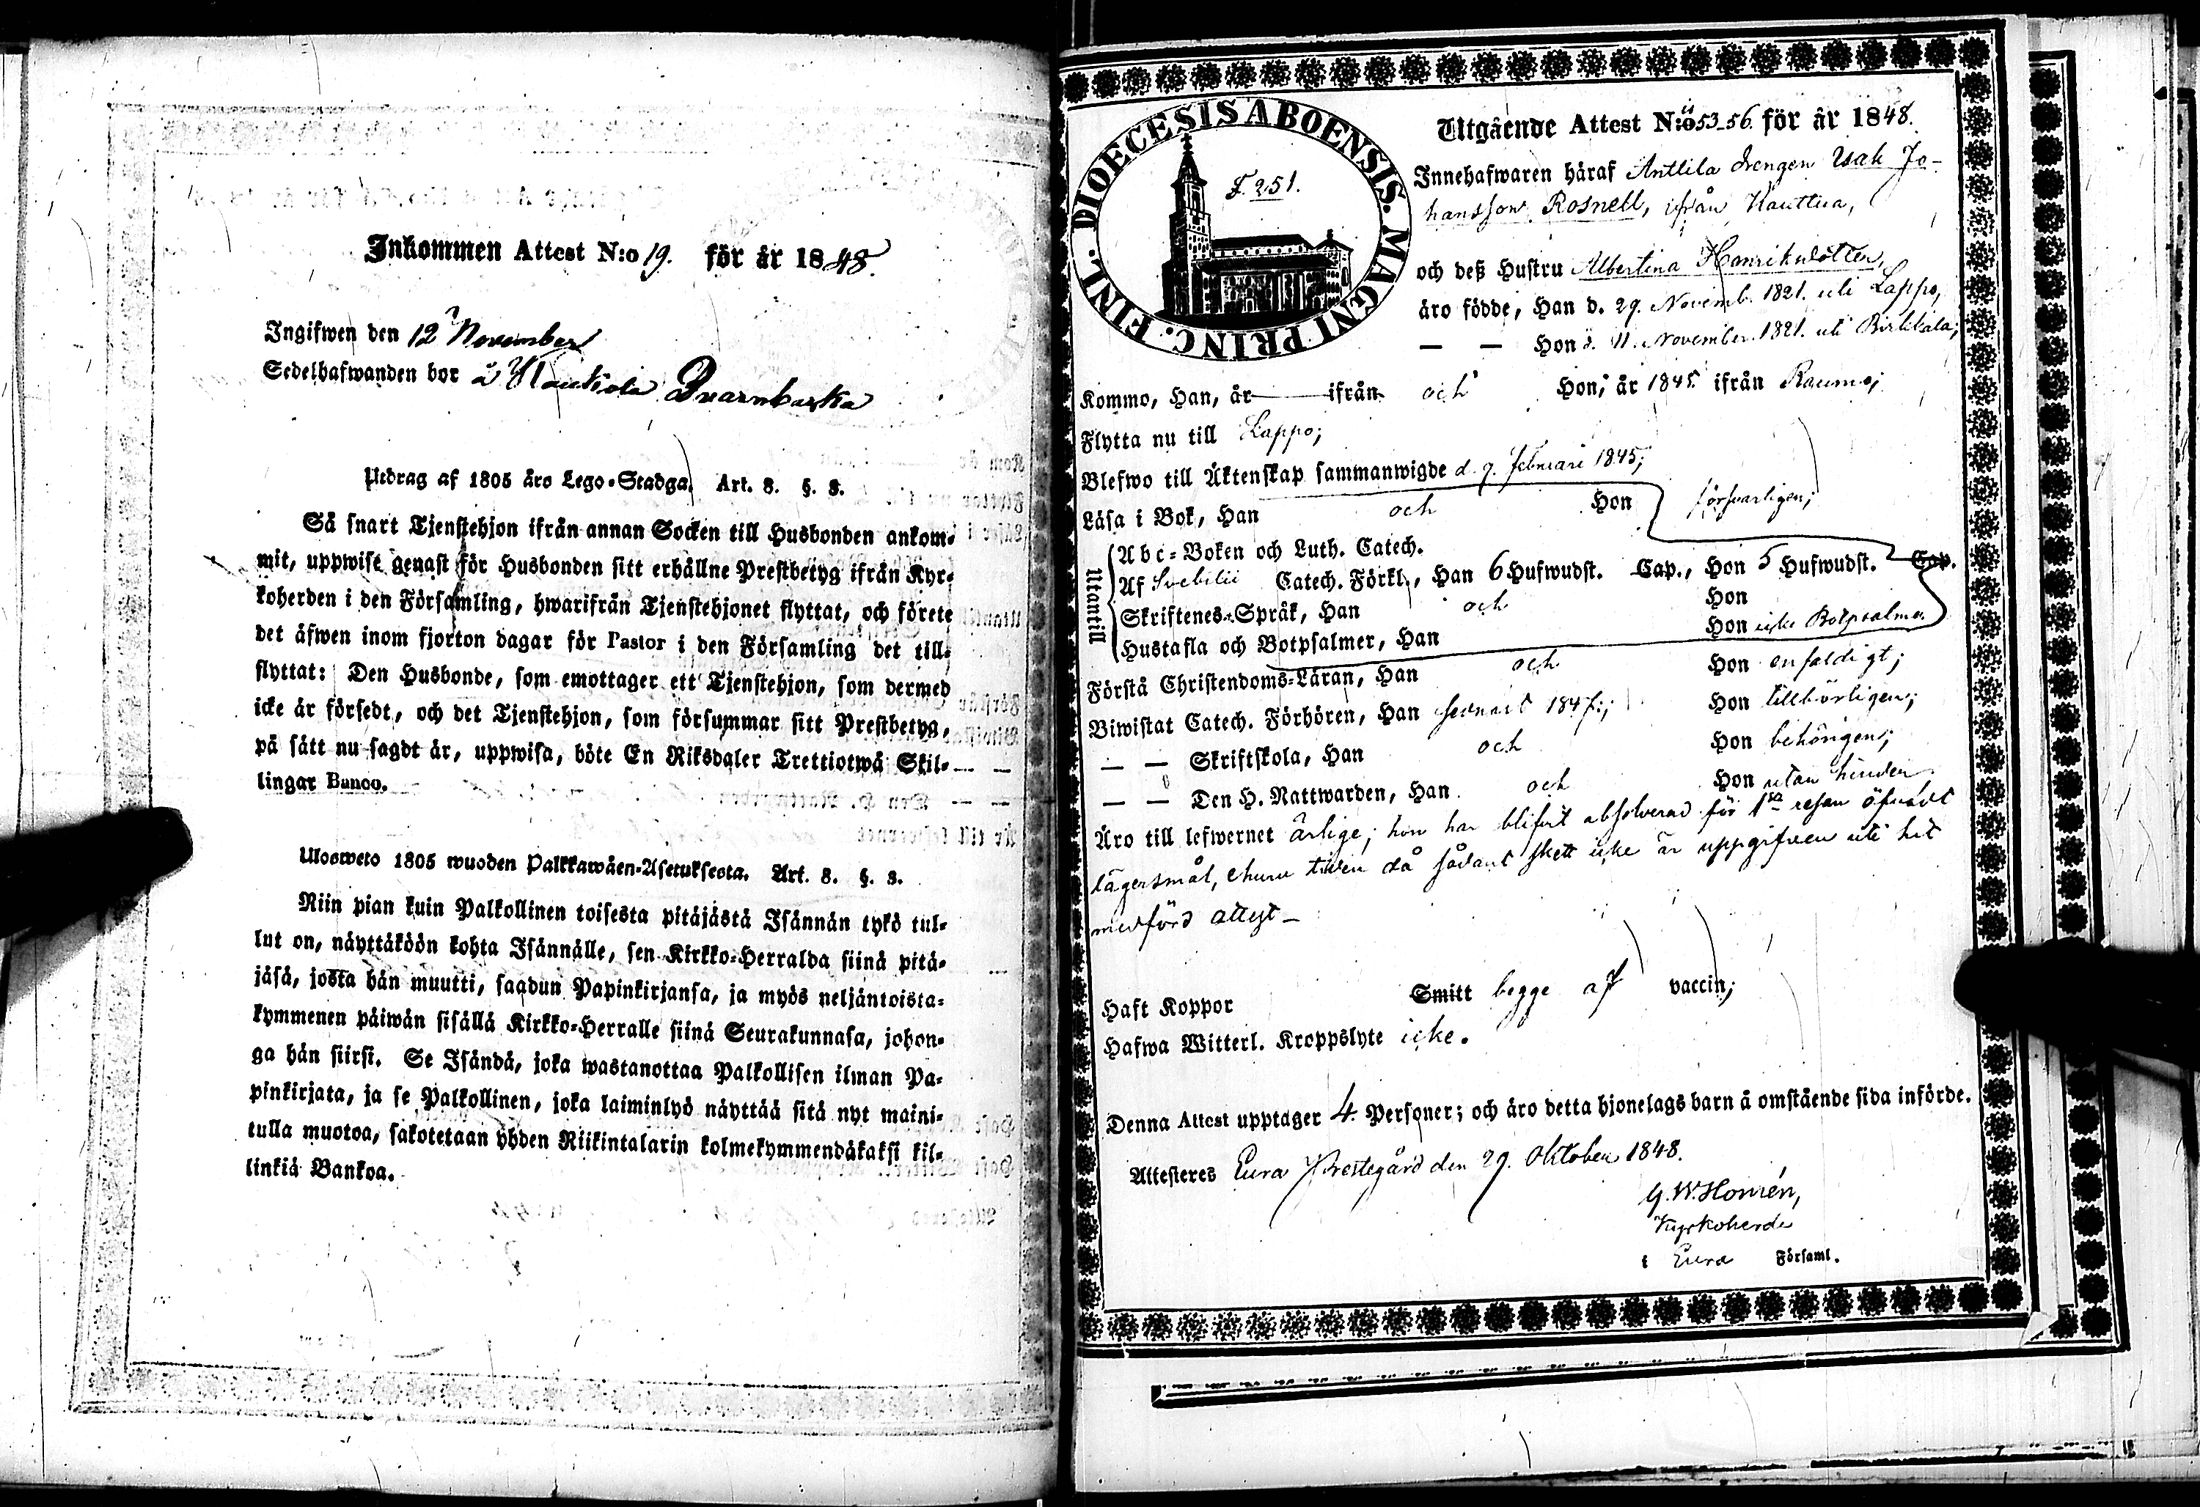 Inkommen Attest N:o 19. för år 1848.
Ingifwen den 12 November
Sedelhafwanden bor å
Utdrag af 1805 års Lego-Stadga. Art. 8. §. 8.
Så snart Tjenstehjon ifrån annan Socken till Husbonden ankom-
mit, uppwise genast för Husbonden sitt erhållne Prestbetyg ifrån Kyr-
koherden i den Församling, hwarifrån Tjenstehjonet flyttat, och förete
det äfwen inom fjorton dagar för Pastor i den Församling det till-
flyttat: Den Husbonde, som emottager ett Tjenstehjon, som dermed
icke är försedt, och det Tjenstehjon, som försummar sitt Prestbetyg,
på sätt nu sagdt är, uppwisa, böte En Riksdaler Trettiotwå Skil-
lingar Banco.
Ulosweto 1805 wuoden Palkkawäen-Asetuksesta. Art. 8. §. 8.
Niin pian kuin Palkollinen toisesta pitäjästä Isännän tykö tul-
lut on, näyttäköön kohta Isännälle, sen Kirkko-Herralda siinä pitä-
jäsä, josta hän muutti, saadun Papinkirjansa, ja myös neljäntoista-
kymmenen päiwän sisällä Kirkko-Herralle siinä Seurakunnasa, johon-
ga hän siirsi. Se Isändä, joka wastanottaa Palkollisen ilman Pa-
pinkirjata, ja se Palkollinen, joka laiminlyö näyttää sitä nyt maini-
tulla muotoa, sakotetaan yhden Riikintalarin kolmekymmendäkaksi kil-
linkiä Bankoa.
DIOECESIS ABOENSIS. MAGNI PRINC. FINL.
F. 251.
Utgående Attest N:o 53-56. för år 1848.
Innehafwaren häraf Anttila drengen Isak Jo-
hansson Rosnell, ifrån Kauttua,
och deß Hustru Albertina Henriksdotter,
äro födde, Han d. 29. Novemb. 1821. uti Lappo,
— — Hon d. 11. November 1821. uti Birkkala;
Kommo, Han, år — ifrån och Hon, år 1845 ifrån Raumo;
Flytta nu till Lappo;
Blefwo till Äktenskap sammanwigde d. 9. februari 1845;
Läsa i Bok, Han och Hon försvarligen;
Utantill
Abc-Boken och Luth. Catech.
Af Svebilii Catech. Förkl., Han 6 Hufwudst. Cap., Hon 5 Hufwudst. Cap.
Skriftenes-Språk, Han och Hon
Hustafla och Botpsalmer, Han Hon icke Botpsalmer.
Förstå Christendoms-Läran, Han och Hon enfaldigt;
Biwistat Catech. Förhören, Han senast 1847; Hon tillbörligen;
— — Skriftskola, Han och Hon behörigen;
— — Den H. Nattwarden, Han och Hon utan hinder.
Äro till lefwernet ärlige; hon har blifvit absolverad för 1sta resan öfvadt
lägersmål, churu tiden då sådant skett icke är uppgifven uti hit
medförd attest —
Haft Koppor Smitt begge af vaccin;
Hafwa Witterl. Kroppslyte icke.
Denna Attest upptager 4. Personer; och äro detta hjonelags barn å omstående sida införde.
Attesteres Eura Prestegård den 29. Oktober 1848.
G. W. Homén,
Kyrkoherde
i Eura Församl.